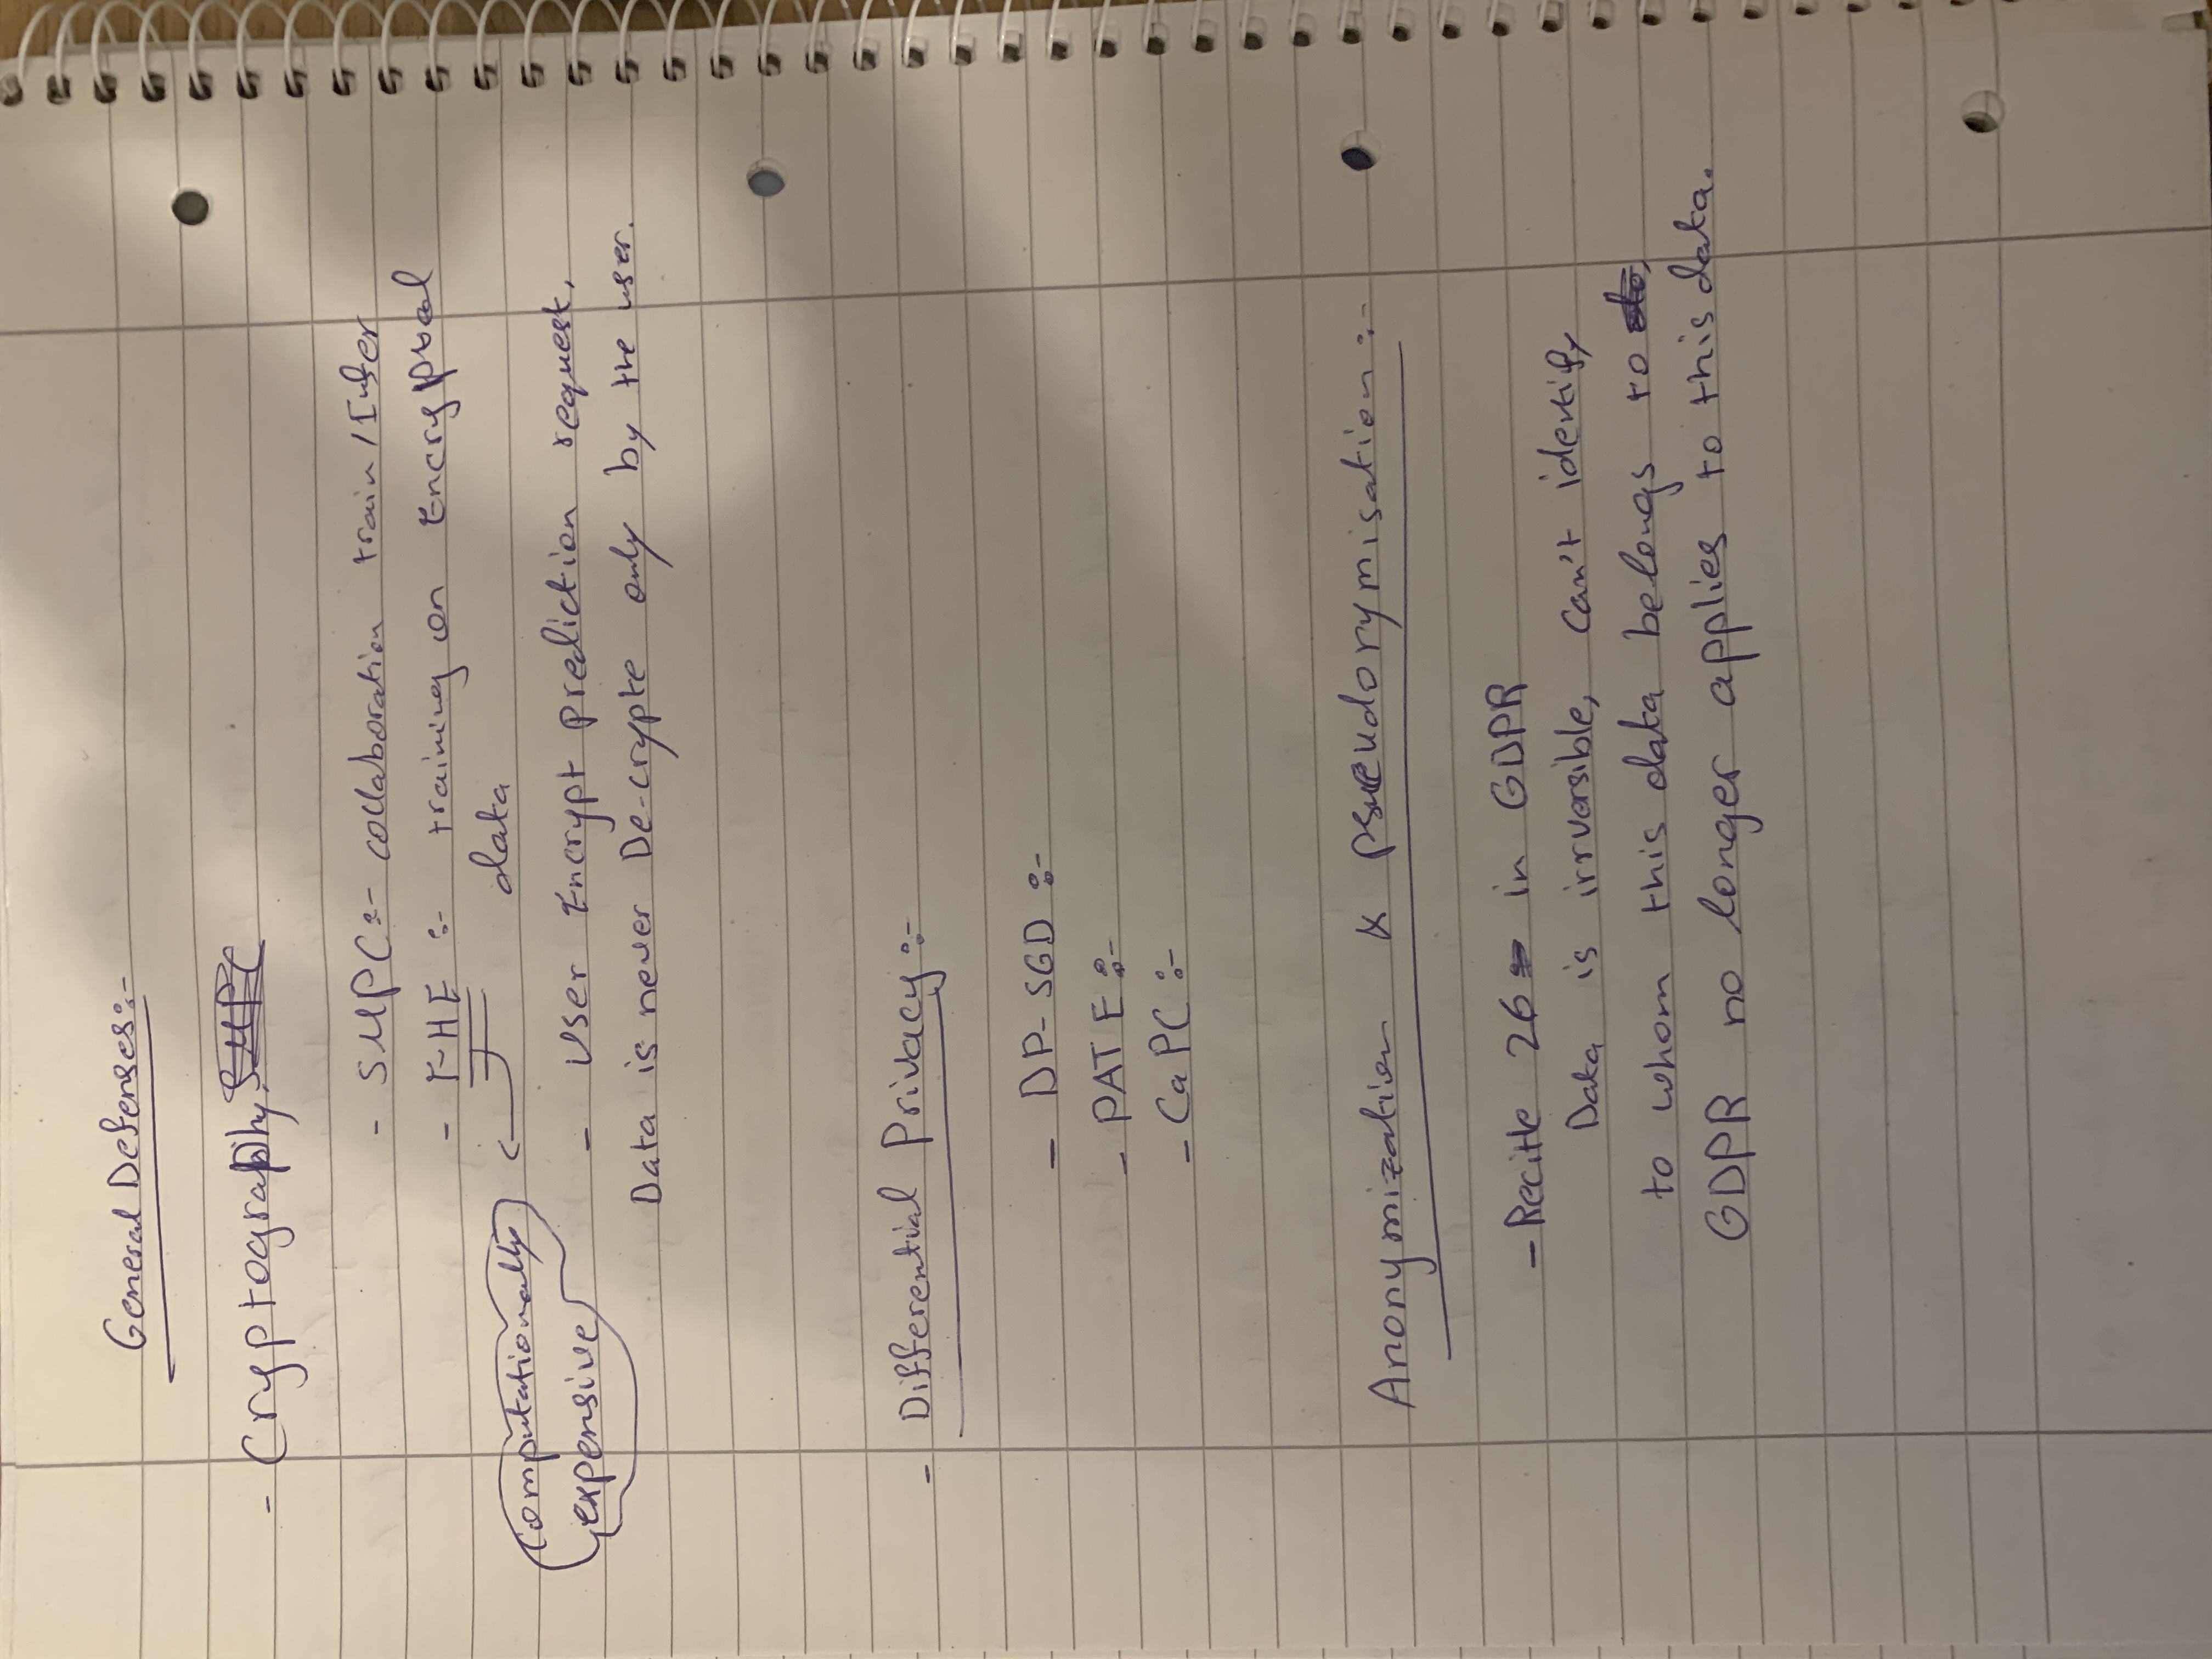 General Defenses:-
- Cryptography.
- SMPC:- collaboration train/Infer
- FHE :- training on Encrypted
data
computationally
expensive
- User Encrypt prediction request,
Data is never De-crypte only by the user.
- Differential Privacy:-
- DP-SGD :-
- PATE :-
- CaPC :-
Anonymization & pseudorymisation :-
- Recitle 26 in GDPR
Data is irrversible, can't identify
to whom this data belongs to
GDPR no longer applies to this data.